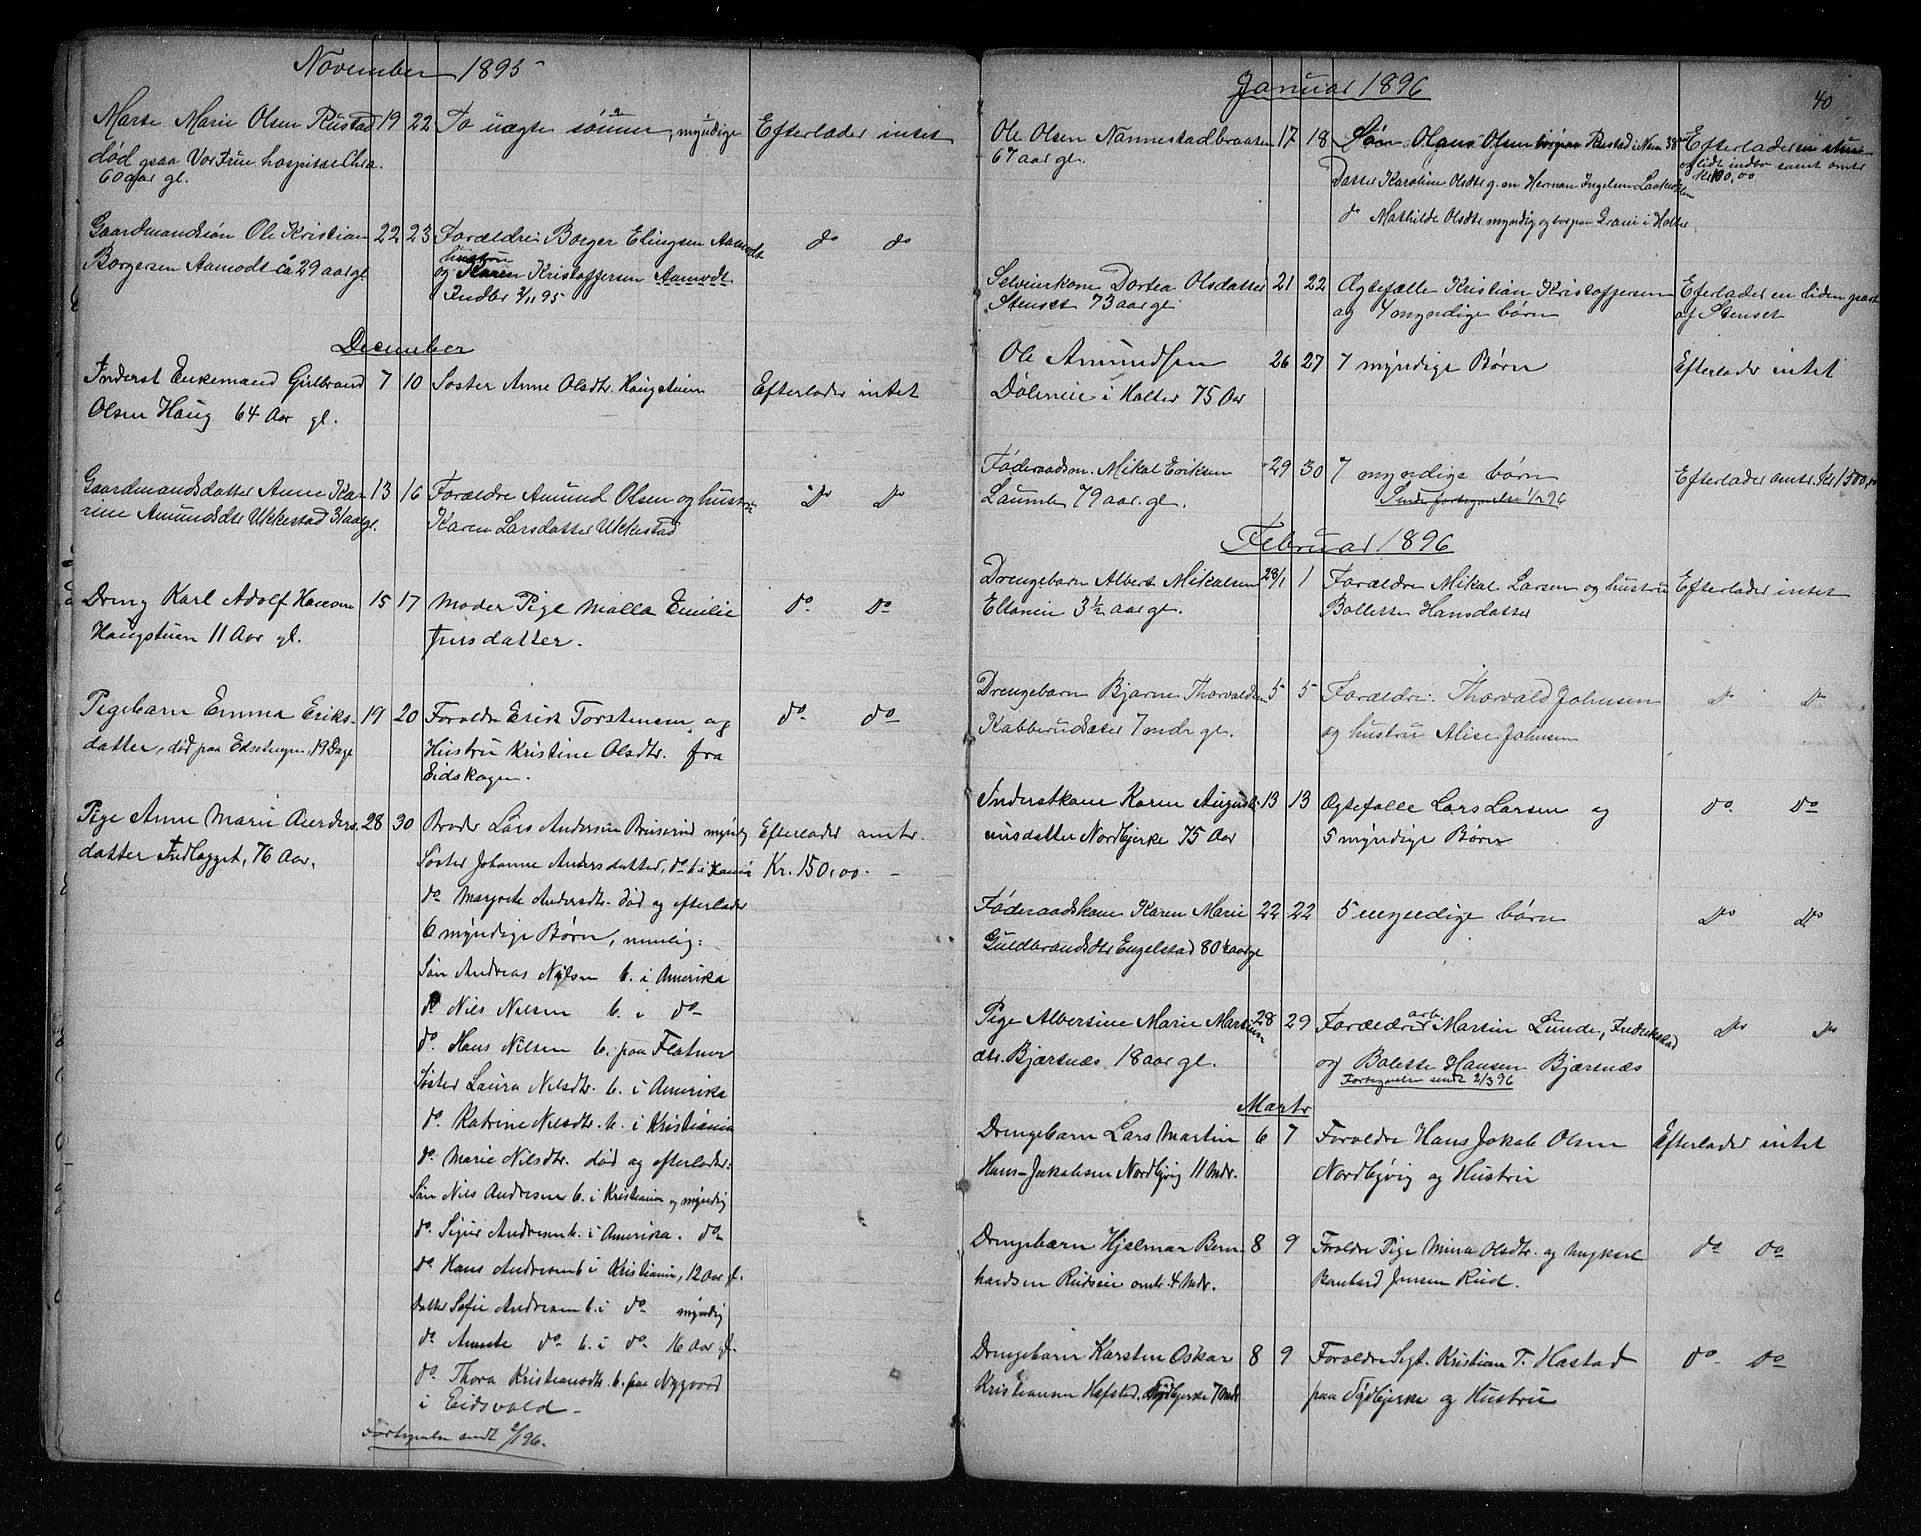 November 1895
Marte Marie Olsen Rustad 19 22 To uægte sønner, myndige Efterlader intet
død paa Vor Frue hospital Chra.
60 aar gl.
Gaardmandssøn Ole Kristian 22 23 Forældre Borger Elingsen Aamodt do do
hustru
Borgersen Aamodt ca 29 aar gl. og Karen Kristoffersen Aamodt
Indber 2/11 95
December
Inderst Enkemand Gulbrand 7 10 Søster Anne Olsdtr. Haugstuen Efterlader intet
Olsen Haug 64 Aar gl.
Gaardmandsdatter Anne Ka- 13 16 Forældre Amund Olsen og hustru do do
rine Amundsdtr Ukkestad 31 aar gl. Karen Larsdatter Ukkestad
Dreng Karl Adolf Hansen 15 17 Moder Pige Malla Emilie do do
Haugstuen 11 Aar gl. Jensdatter.
Pigebarn Emma Eriks- 19 20 Forældre Erik Torstensen og do do
datter, død paa 19 Dage Hustru Kristine Olsdtr. fra
Eidskogen.
Pige Anne Marie Anders- 28 30 Broder Lars Andersen myndig Efterlader omtr.
datter Indlagget, 76 Aar. Søster Johanne Andersdatter, do b. i Kr. 150,00. –
do Margrete Andersdtr. død og efterlader
6 myndige Børn, nemlig:
Søn Andreas Nilsen b. i Amerika
do Nils Nilsen b. i do
do. Hans Nilsen b. paa Flatner
Søster Laura Nilsdtr. b. i Amerika
do. Katrine Nilsdtr. b. i Kristiania
do. Marie Nilsdtr. død og efterlader:
Søn Nils Andresen b. i Kristiania og myndig
do. Sigur Andresen b. i Amerika. do
do. Hans Andresen b i Kristiania, 12 Aar gl.
Datter Sofie Andresen b. i do myndig
do. Annette do b. i do 16 Aar gl.
do. Thora Kristiansdtr b. paa Nygaard
i Eidsvold –
Fortegnelse sendt 2/1 96.
40
Januar 1896
Ole Olsen Nannestadbraaten 17 18 Søn Olaus Olsen Rustad i Nan 38 Efterlader en stue
67 aar gl. og lidt indbo samt omtr
kr 100,00
Datter Karoline Olsdtr g. en Herman Ingelsen
do Mathilde Olsdtr myndig og bor paa i Holter
Selveierkone Dortea Olsdatter 21 22 Ægtefælle Kristian Kristoffersen Eferlader en liden part
Stenset 73 aar gl. og 4 myndige børn af Stenset
Ole Amundsen 26 27 7 myndige Børn Efterlader intet
Døleneie i Holter 75 Aar
Føderaadsm. Mikal Eriksen 29 30 7 myndige børn Efterlader omtr. Kr 1500,00
Laumb 79 aar gl. Sendt fortegnelse 1/2 96
Februar 1896
Drengebarn Albert Mikalsen 28/1 1 Forældre Mikal Larsen og hustru Efterlader intet
3 ½ aar gl. Bolette Hansdatter
Drengebarn Bjarne Thorvaldsen 5 5 Forældre: Thorvald Johnsen do do
Kabberudsæter 7 mdr gl. og hustru Alise Johnsen
Inderstkone Karen Augusti- 13 13 Ægtefælle Lars Larsen og do do
nusdatter Nordbjerke 75 Aar 5 myndige Børn
Føderaadskone Karen Marie 22 22 5 myndige børn do do
Guldbrandsdtr Engelstad 80 ½ aar gl
Pige Albertine Marie Martin 28 29 Forældre arb. Martin Lunde, Fredrikstad do do
dtr. Bjærtnæs 18 aar gl. og Bolette Hansen Bjærtnæs
Fortegnelse sendt 2/3 96
Marts
Drengebarn Lars Martin 6 7 Forældre Hans Jakob Olsen Efterlader intet
Hans-Jakobsen Nordbyvig 11 Mdr. Nordbyvig og Hustru
Drengebarn Hjalmar Bern- 8 9 Forældre Pige Mina Olsdtr. og Ungkarl do do
hardsen Rudseie omtr. 4 Mdr. Bernhard Jensen Rud.
Drengebarn Karsten Oskar 8 9 Forældre Sergt. Kristian T. Hastad do do
Kristiansen Hafstad, Nordbjerke 7 Mdr paa Nordbjerke og Hustru